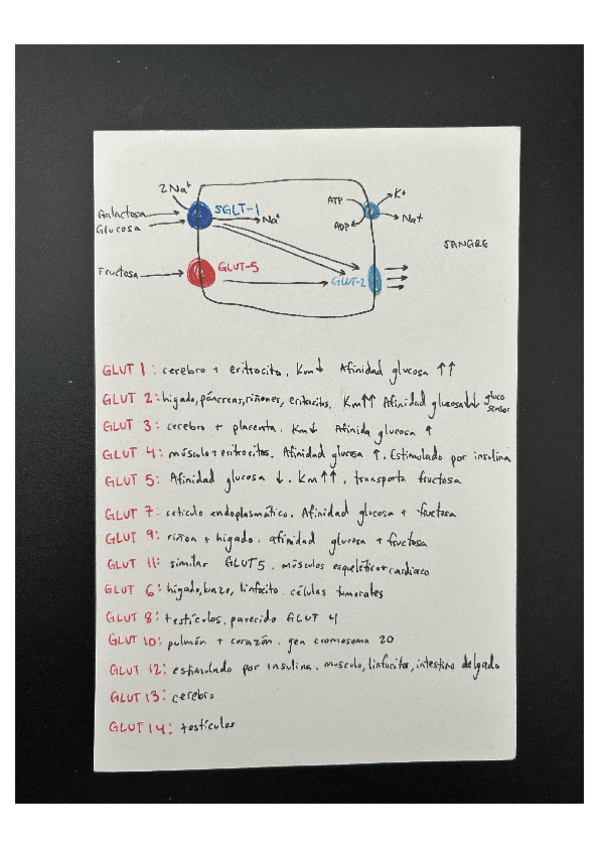 2Na+
Galactosa
Glucosa
SGLT-1
Na+
ATP
ADP
K+
Na+
SANGRE
Fructosa
GLUT-5
GLUT-2
GLUT 1: cerebro + eritrocito. Km↓ Afinidad glucosa ↑↑
GLUT 2: higado, páncreas, riñones, eritocitos. Km↑↑ Afinidad glucosa↓↓ gluco sensor
GLUT 3: cerebro + placenta. Km↓ Afinida glucosa ↑
GLUT 4: músculo + eritrocitos. Afinidad glucosa ↑. Estimulado por insulina
GLUT 5: Afinidad glucosa ↓. Km↑↑. transporta fructosa
GLUT 7: retículo endoplasmático. Afinidad glucosa + fructosa
GLUT 9: riñon + higado. afinidad glucosa + fructosa
GLUT 11: similar GLUT5. músculos esquelético + cardiaco
GLUT 6: higado, bazo, linfocito. células tumorales
GLUT 8: testículos, parecido GLUT 4
GLUT 10: pulmón + corazón. gen cromosoma 20
GLUT 12: estimulado por insulina. musculo, linfocitos, intestino delgado
GLUT 13: cerebro
GLUT 14: testículos